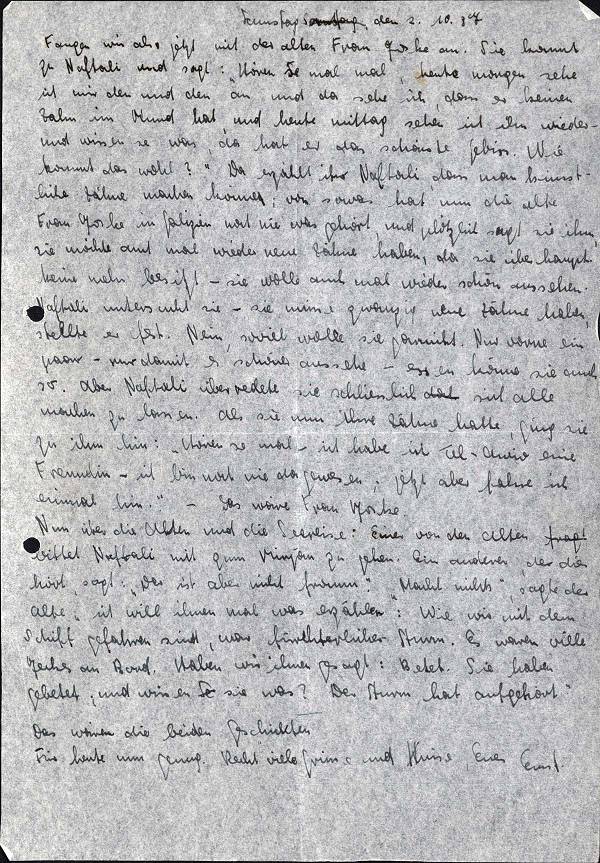 Samstag, den 2. 10. 37
Fangen wir also jetzt mit der alten Frau Yorke an. Sie kommt
zu Naftali und sagt: "Hören Se mal mal, heute morgen sehe
ich mir den und den an und da sehe ich, dass er keinen
Zahn im Mund hat und heute mittag sehen ich ihn wieder-
und wissen se was, da hat er das schönste Gebiss. Wie
kommt das wohl?" Da erzählt ihr Naftali, dass man künst-
liche Zähne machen könne, von sowas hat nun die alte
Frau Yorke in Galizien noch nie was gehört und plötzlich sagt sie ihm,
sie möchte auch mal wieder neue Zähne haben, da sie überhaupt
keine mehr besitzt - sie wolle auch mal wieder schön aussehen.
Naftali untersucht sie - sie müsse zwanzig neue Zähne haben,
stellte er fest. Nein, soviel wolle sie garnicht. Nur vorne ein
paar - nur damit es schöner aussehe - essen könne sie auch
so. Aber Naftali überredete sie schliesslich sich alle
machen zu lassen. Als sie nun ihre Zähne hatte, ging sie
zu ihm hin: "Hören se mal - ich habe in Tel-Awiw eine
Freundin - ich bin noch nie dagewesen, jetzt aber fahre ich
einmal hin." - Das wäre Frau Yorke
Nun über die Alten und die Seereise: Einer von den Alten
bittet Naftali mit zum Minjan zu gehen. Ein anderer, der dies
hört, sagt: "Der ist aber nicht fromm." "Macht nichts", sagte der
Alte, "ich will ihnen mal was erzählen: Wie wir mit dem
Schiff gefahren sind, war fürchterlicher Sturm. Es waren viele
an Bord. Haben wir ihnen gesagt: Betet. Sie haben
gebetet, und wissen Se sie was? Der Sturm hat aufgehört"
Das wären die beiden Geschichten
Für heute nun genug. Recht viele Grüsse und Küsse, Euer Ernst.